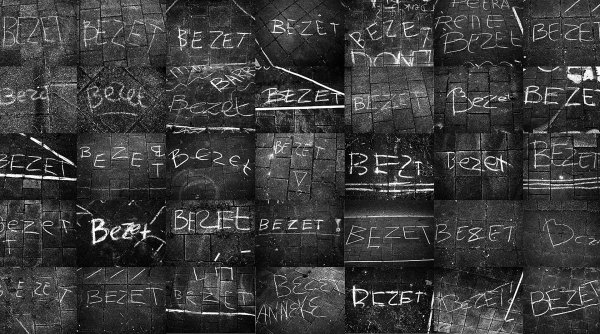 BEZET
BEZET
BEZET
BEZET
BEZET
DON'T
PETRA
RENE
BEZET
BEZET
Beze
Bezet
Bezet
BEZET
BEZET
Beze
BEZET
BEZET
BEZET
Bezet
BEZET
BEZET
Bezet
BEZET
ezet
Bezet
BEZET
BEZET !
BEZET
BEZET
Bez
BEZET
BEZET
BEZET
BEZET
ANNEKE
BEZET
BEZET
BEZET